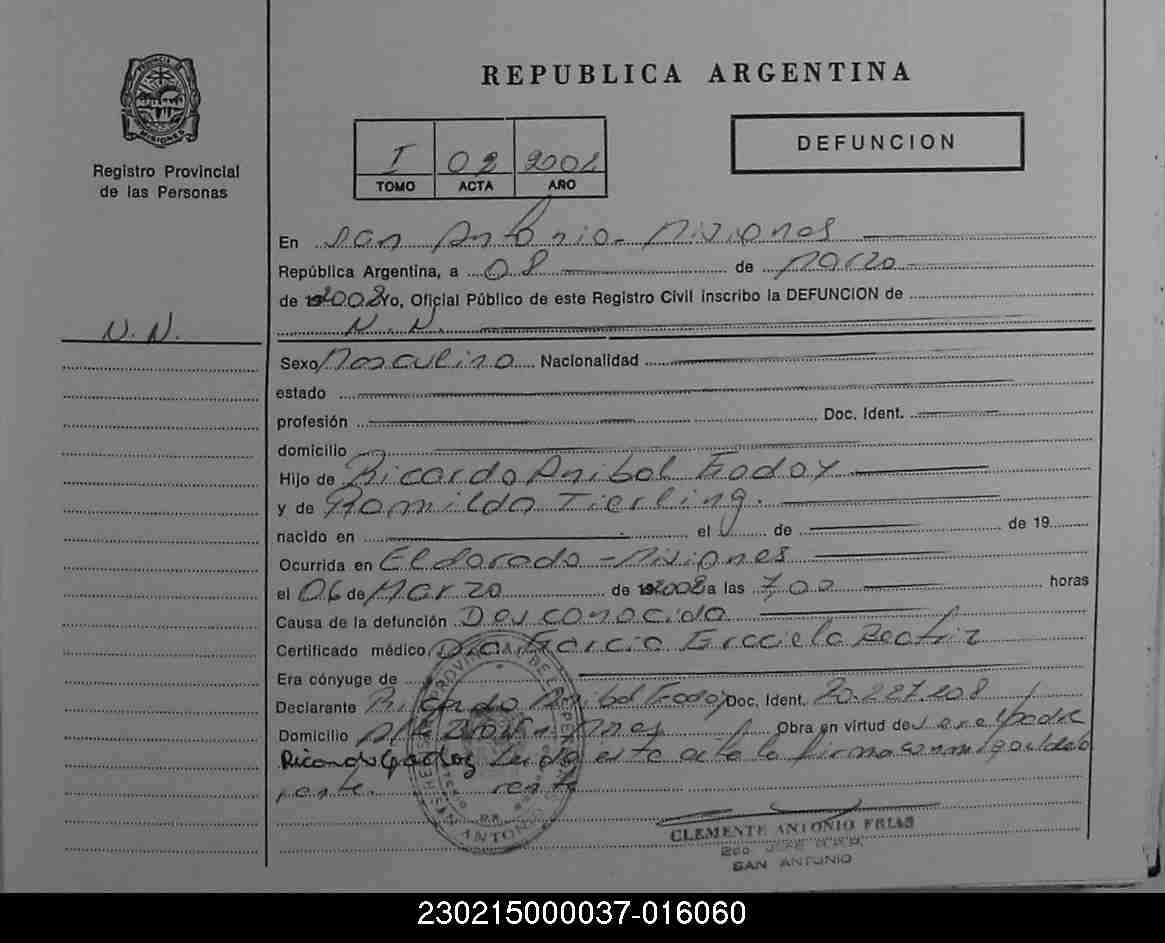 REPUBLICA ARGENTINA
DEFUNCION
Registro Provincial
de las Personas
I 02
TOMO ACTA AÑO
En San Antonio - Misiones
República Argentina, a 08 de Marzo
de 2008 Yo, Oficial Público de este Registro Civil inscribo la DEFUNCION de
N. N.
N. N.
Sexo Masculino Nacionalidad
estado
profesión Doc. Ident.
domicilio
Hijo de Ricardo Anibal Godoy
y de Romilda Tierling.
nacido en el de de 19
Ocurrida en Eldorado - Misiones
el 06 de Marzo de 2008 a las 7,00 horas
Causa de la defunción Desconocida
Certificado médico Dra Garcia Graciela Beatriz
Era cónyuge de
Declarante Ricardo Anibal Godoy Doc. Ident. 20.227.208
Domicilio Alte Brown Mnes Obra en virtud de ser el padre
Ricardo Godoy Leida este acta la firma conmigo el decla
rente
CLEMENTE ANTONIO FRIAS
SAN ANTONIO
230215000037-016060